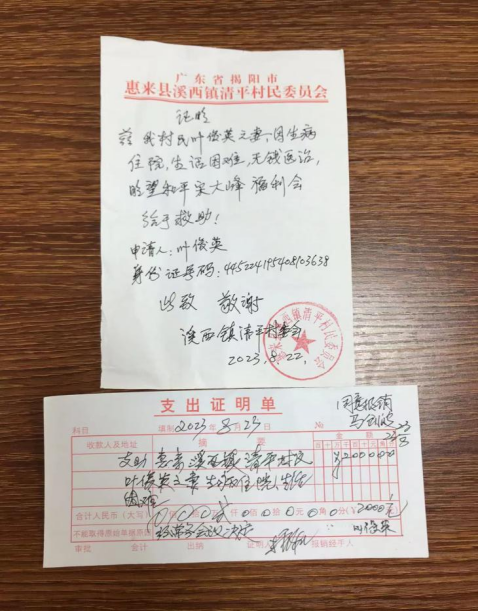 广东省揭阳市
惠来县溪西镇清平村民委员会
证明
兹我村民叶俊英之妻,因生病
住院,生活困难,无钱医治,
盼望和平宋大峰福利会
给予救助!
申请人:叶俊英
身份证号码:445224195408103638
此致 敬谢
溪西镇清平村委会
2023.8.22.
支出证明单
同意报销
科目
填制2023年8月23日
№
收款人及地址
摘要
金额
支助惠来溪西镇清平村民
¥200000
叶俊英之妻生病住院,生活
困难
合计人民币(大写)
仟0佰0拾0元0角0分(¥2000元)
不能取得原始单据原因
叶俊英
审批 会计 出纳 证明 报销经手人